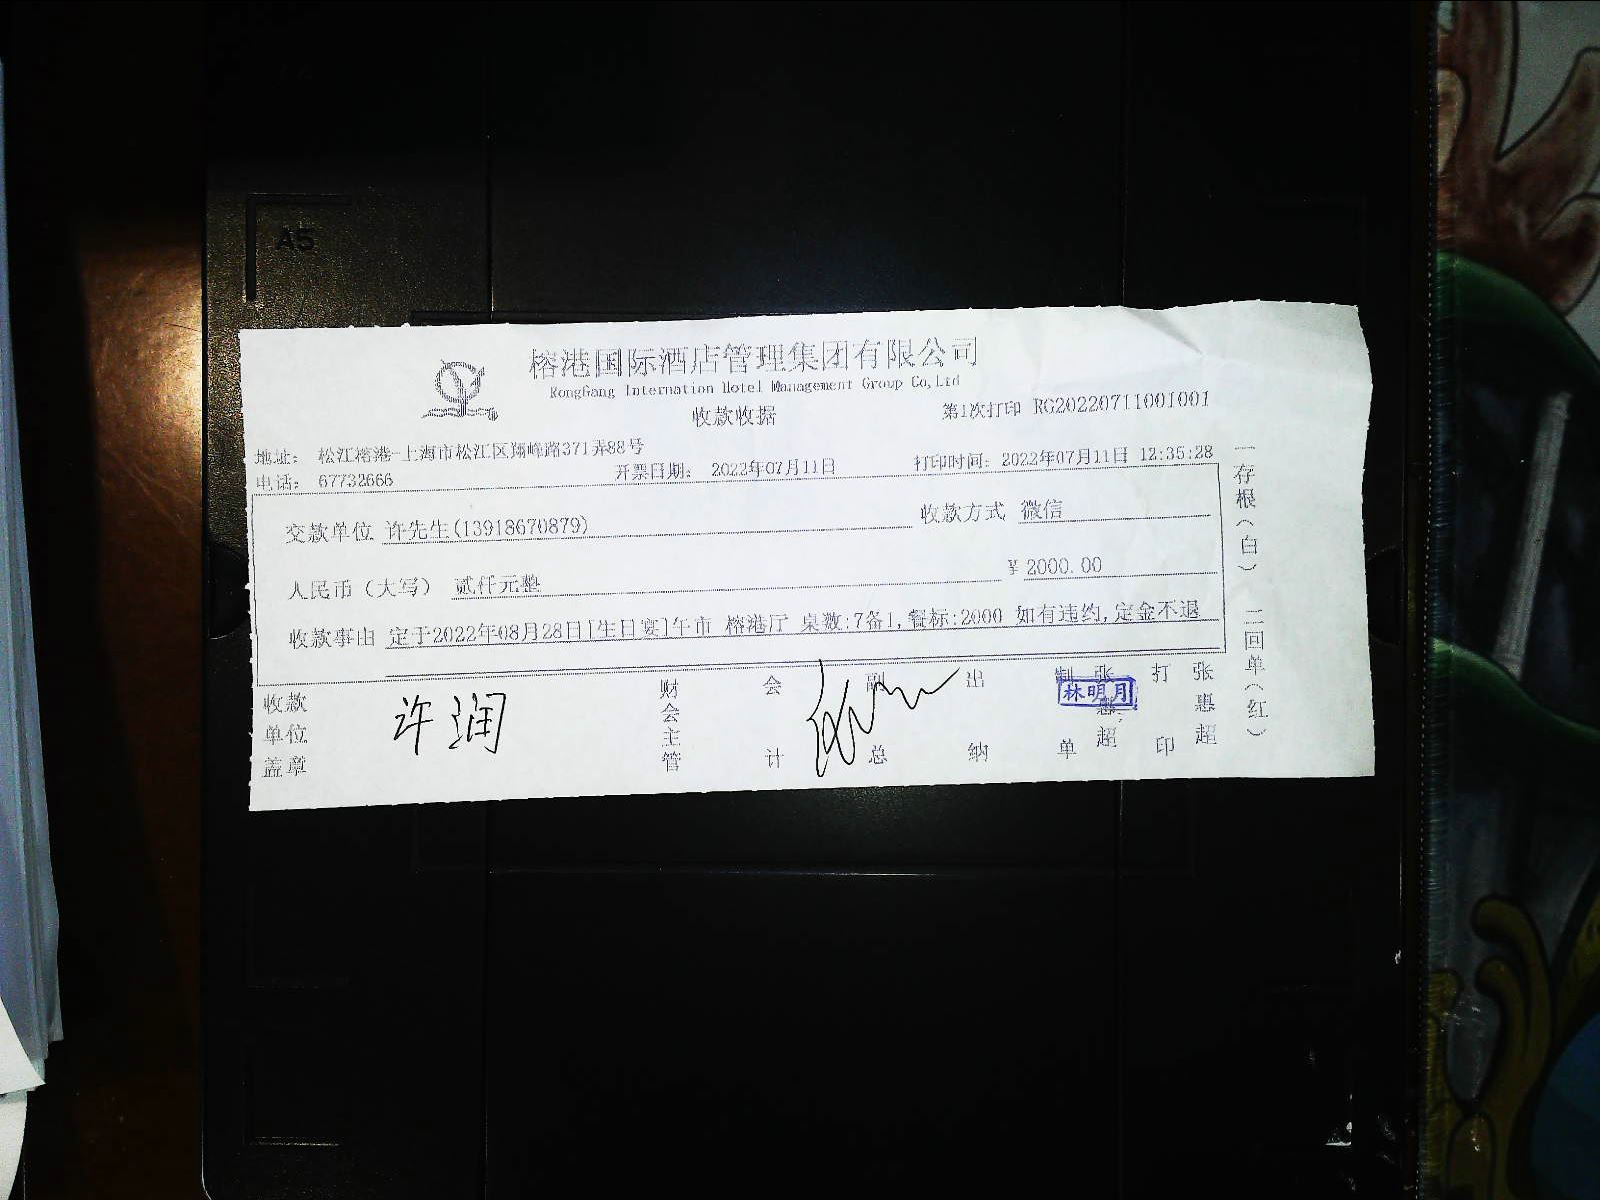 A5
榕港国际酒店管理集团有限公司
RongGang Internation Hotel Management Group Co,Ltd
收款收据
第1次打印 RG20220711001001
地址： 松江榕港-上海市松江区翔峰路371弄88号
电话： 67732666 开票日期： 2022年07月11日 打印时间：2022年07月11日 12:35:28
交款单位 许先生(13918670879) 收款方式 微信
人民币（大写） 贰仟元整 ￥2000.00
收款事由 定于2022年08月28日[生日宴]午市 榕港厅 桌数:7备1,餐标:2000 如有违约,定金不退
收款单位盖章 许润 财会主管 会计 副总 出纳 制单 张惠超 打印 张惠超
林明月
一存根（白） 二回单（红）